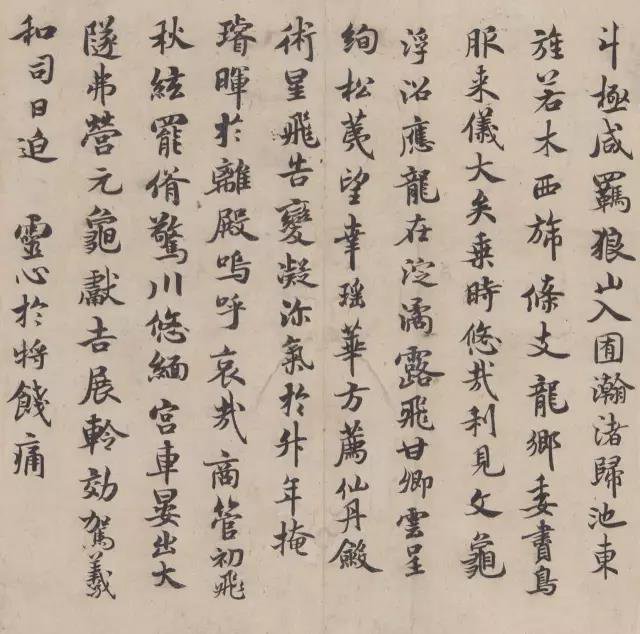 斗極咸羈狼山入囿瀚渚歸池東
旌若木西斾條支龍鄉委書鳥
服来儀大矣乘時悠哉利見文龜
浮沼應龍在淀潏露飛甘卿雲呈
絢松荑望幸瑶華方薦仙丹斂
術星飛告變凝沴氣於升年掩
璿暉於離殿嗚呼哀哉商管初飛
秋絃罷脩驚川悠緬宫車晏出大
隧弗營元龜獻吉展軨効駕羲
和司日迫 靈心於將餞痛